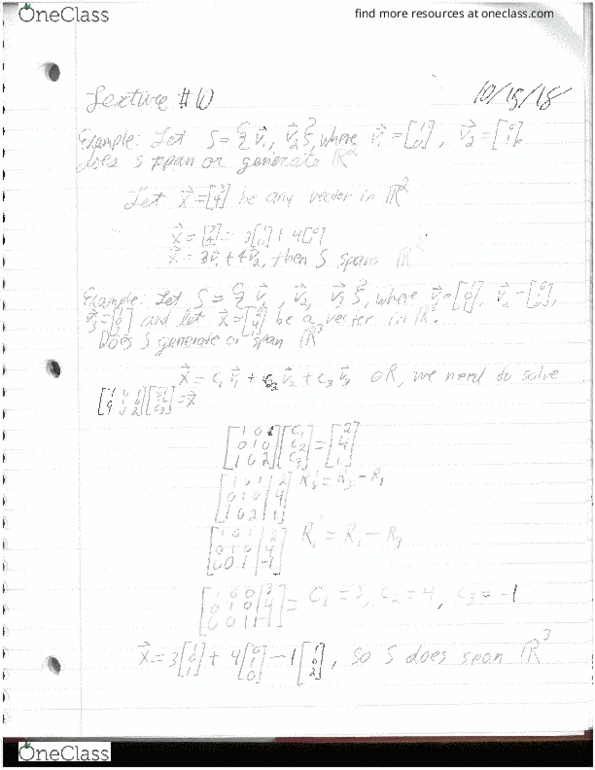 OneClass
find more resources at oneclass.com
Lexture #10
10/15/18
Example: Let S = { v₁, v₂ }, where v₁ = [1 0], v₂ = [0 1]
does S span or generate ℝ²
Let x = [3 4] be any vector in ℝ²
x = [3 4] = 3[1 0] + 4[0 1]
x = 3v₁ + 4v₂, then S spans ℝ²
Example: Let S = { v₁, v₂, v₃ }, where
and let x = [2 4 1] be a vector in ℝ³.
Does S generate or span ℝ³
x = c₁v₁ + c₂v₂ + c₃v₃ OR, we need to solve
[1 0 1
0 1 0
1 0 2] [c₁ c₂ c₃] = [2 4 1]
[1 0 1 | 2
0 1 0 | 4
1 0 2 | 1] R₃ = R₃ - R₁
[1 0 1 | 2
0 1 0 | 4
0 0 1 | -1] R₁ = R₁ - R₃
[1 0 0 | 3
0 1 0 | 4
0 0 1 | -1] = C₁ = 3, C₂ = 4, C₃ = -1
x = 3[1 0 1] + 4[0 1 0] - 1[1 0 2], so S does span ℝ³
OneClass